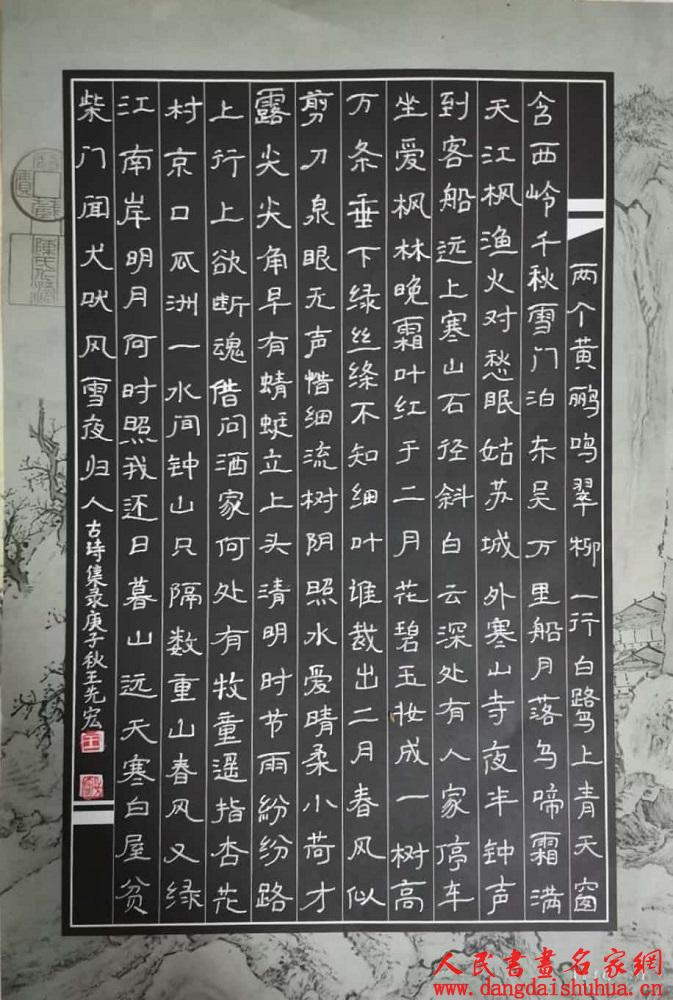 两个黄鹂鸣翠柳一行白鹭上青天窗
含西岭千秋雪门泊东吴万里船月落乌啼霜满
天江枫渔火对愁眠姑苏城外寒山寺夜半钟声
到客船远上寒山石径斜白云深处有人家停车
坐爱枫林晚霜叶红于二月花碧玉妆成一树高
万条垂下绿丝绦不知细叶谁裁出二月春风似
剪刀泉眼无声惜细流树阴照水爱晴柔小荷才
露尖尖角早有蜻蜓立上头清明时节雨纷纷路
上行上欲断魂借问酒家何处有牧童遥指杏花
村京口瓜洲一水间钟山只隔数重山春风又绿
江南岸明月何时照我还日暮山远天寒白屋贫
柴门闻犬吠风雪夜归人古诗集录庚子秋王先宏
王
人民書畫名家網
www.dangdaishuhua.cn